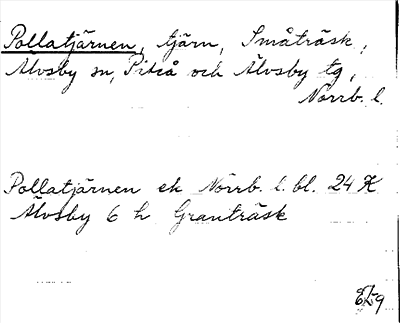 Pollatjärnen, tjärn, Småträsk,
Älvsby sn, Piteå och Älvsby tg,
Norrb. l.
Pollatjärnen ek Norrb. l. bl. 24 K
Älvsby 6 h Granträsk